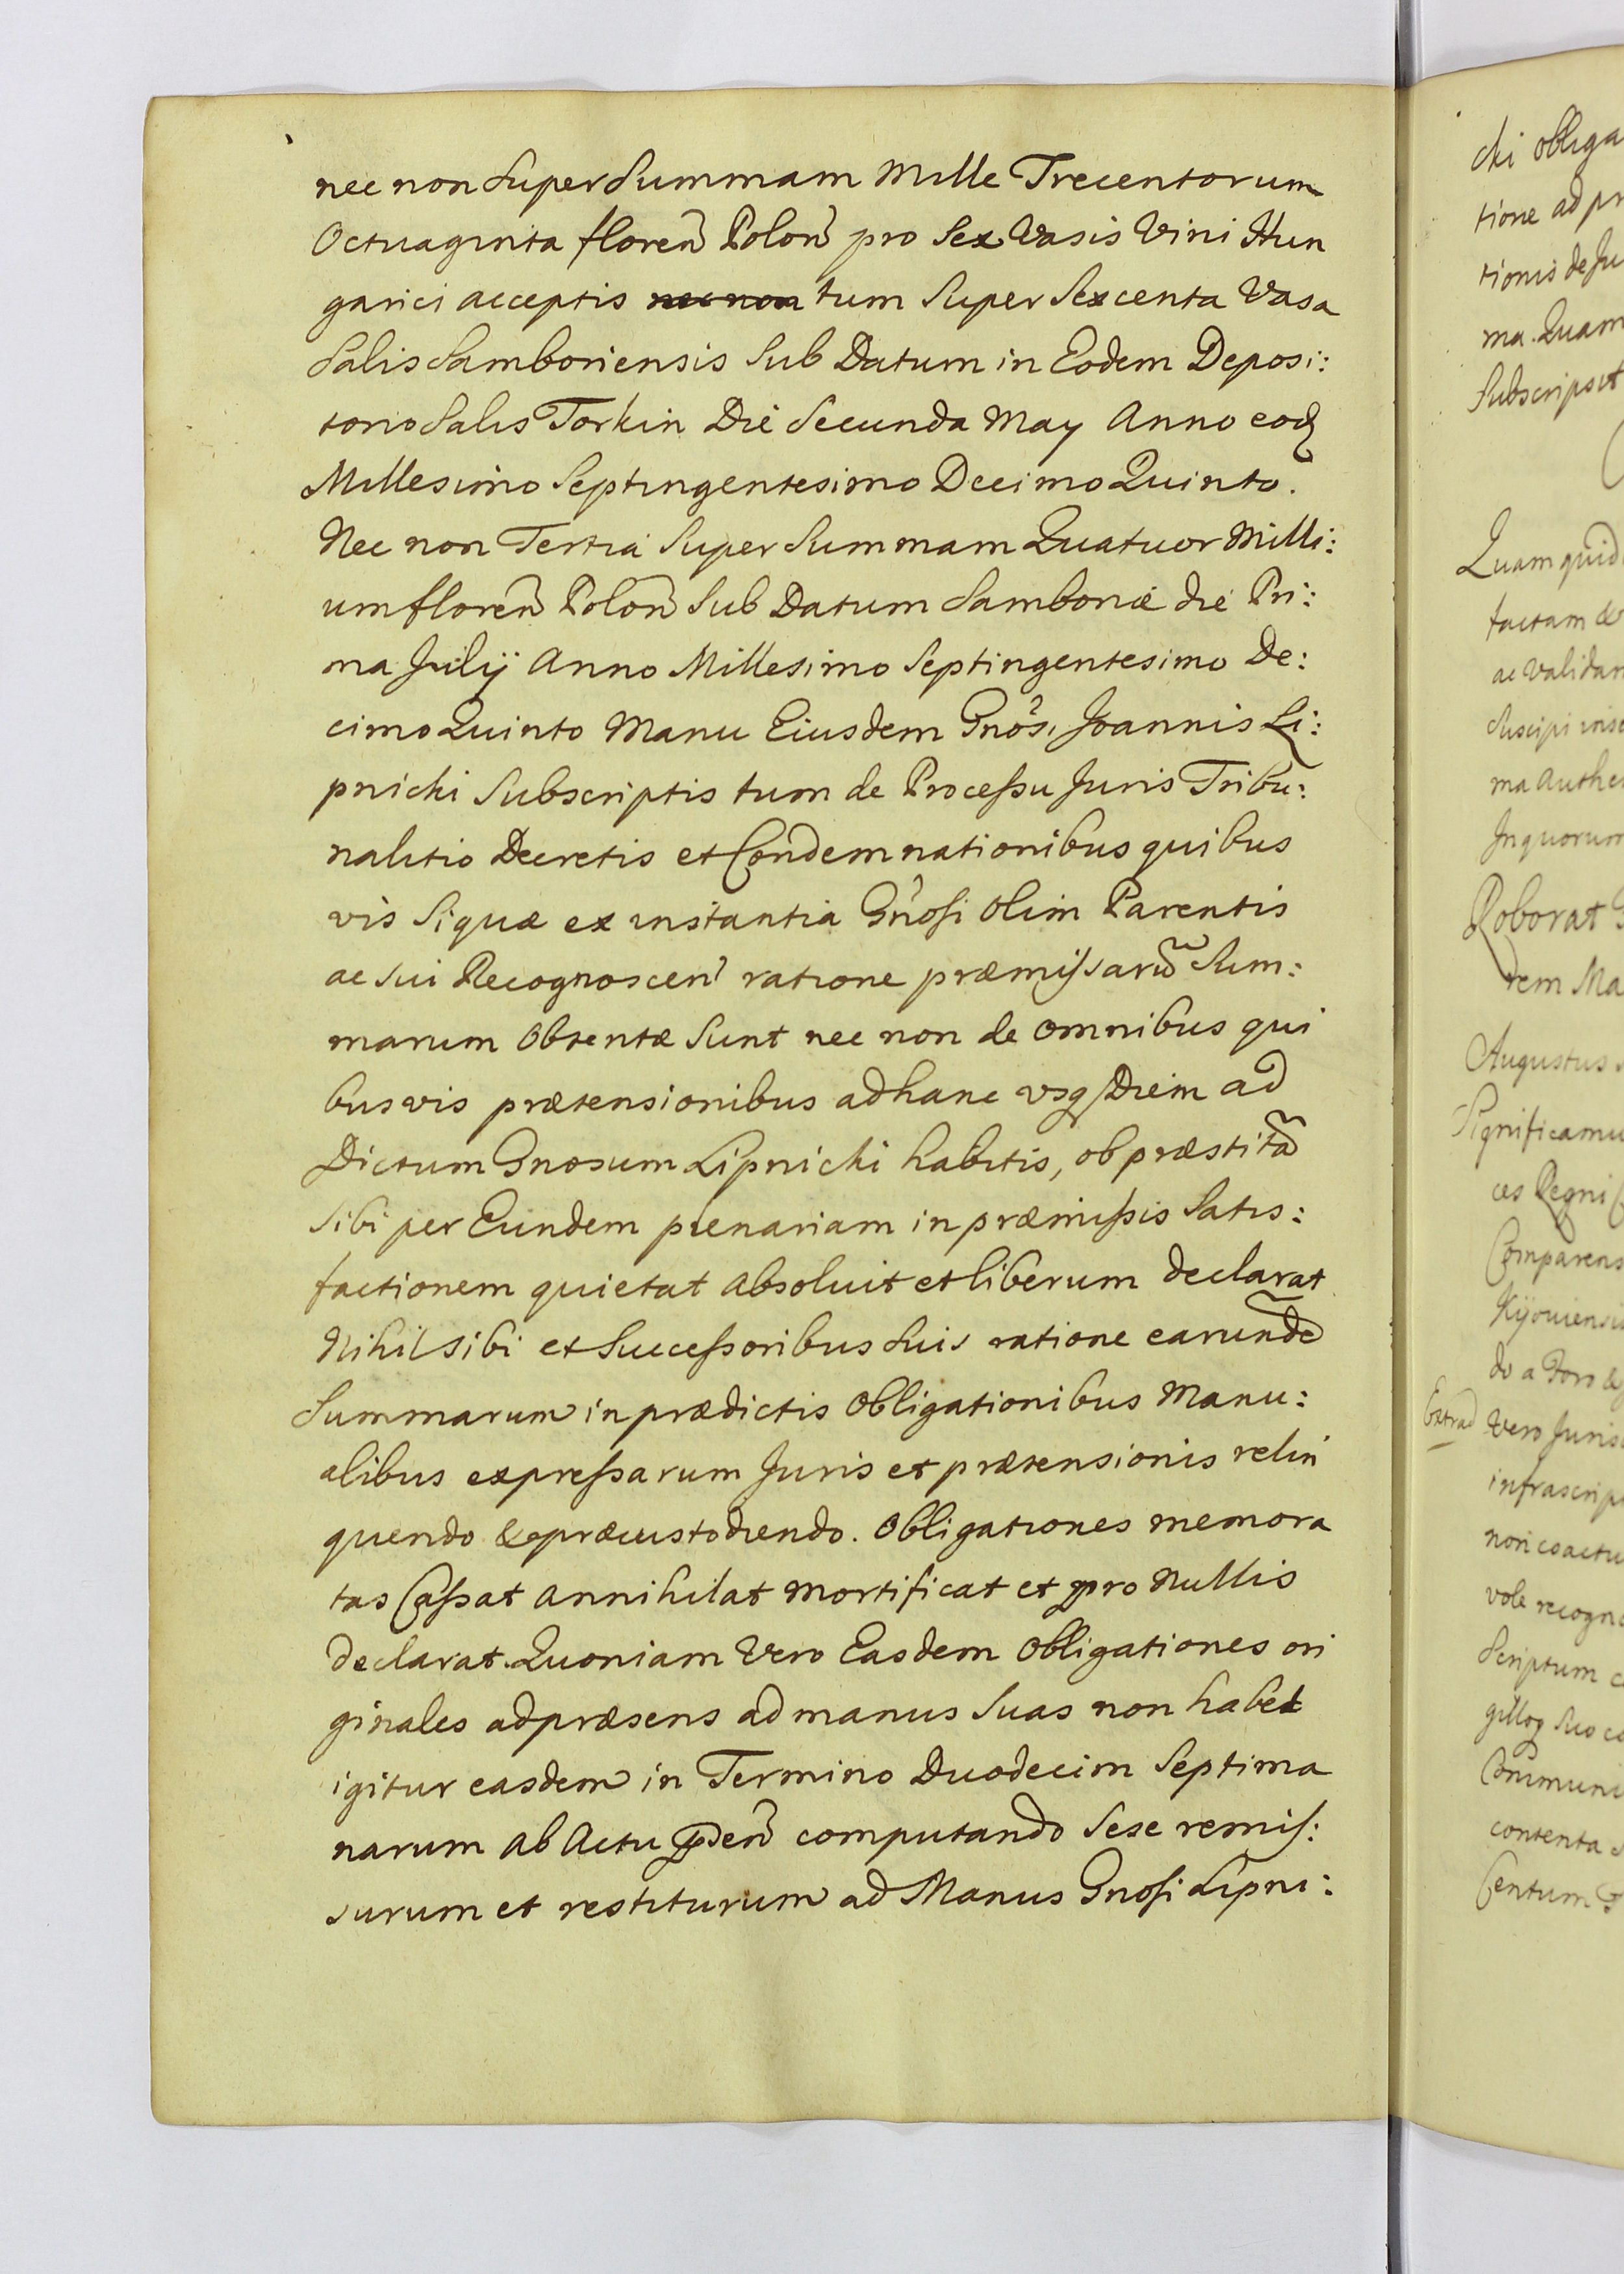 nec non Super Summam Mille Trecentorum
Octuaginta floreñ Poloñ pro Sex Vasis Vini Hun
garici acceptis nec non tum Super Sexcenta Vasa
Salis Samboriensis Sub Datum in Eodem Deposi:
torio Salis Torkin Die Secunda May Anno eodꝫ
Millesimo Septingentesimo Decimo Quinto.
Nec non Tertia Super Summam Quatuor Milli:
um floreñ Poloñ Sub Datum Samboriæ die Pri:
ma Julij Anno Millesimo Septingentesimo De:
cimo Quinto Manu Eiusdem Gnõsi Joannis Li:
pnicki Subscriptis tum de Processu Juris Tribu:
nalitio Decretis et Condemnationibus quibus
vis Siquæ ex instantia Gñosi Olim Parentis
ac Sui Recognosceñ ratione præmissarũ Sum:
marum Obtentæ Sunt nec non de Omnibus qui
busvis prætensionibus ad hanc vsqꝫ Diem ad
Dictum Gnosum Lipnicki habitis, ob præstitã
Sibi per Eundem plenariam in præmissis Satis:
factionem quietat Absoluit et liberum declarat
Nihil Sibi et Successoribus Suis ratione earundẽ
Summarum in prædictis Obligationibus Manu:
alibus expressarum Juris et prætensionis relin
quendo & præcustodiendo. Obligationes memora
tas Cassat Annihilat Mortificat et pro Nullis
declarat. Quoniam Vero Easdem Obligationes ori
ginales ad præsens ad manus Suas non habet
igitur easdem in Termino Duodecim Septima
narum Ab Actu p̃señ computando Sese remis:
surum et restiturum ad Manus Gnosi Lipni:
cki obliga
tione ad pr
tionis de Ju
ma. Quam
Subscripsit
Quam quid
factam &
ac Validam
Suscipi
ma Authen
In quorum
Roborat
dem Ma
Augustus
Significamu
ces Regni
Comparens
Kijoviensi
do a Foro &
Extrad
Vero Juris
infrascrip
non coactu
vole recogno
Scriptum
Suo
Communi
contenta
Centum